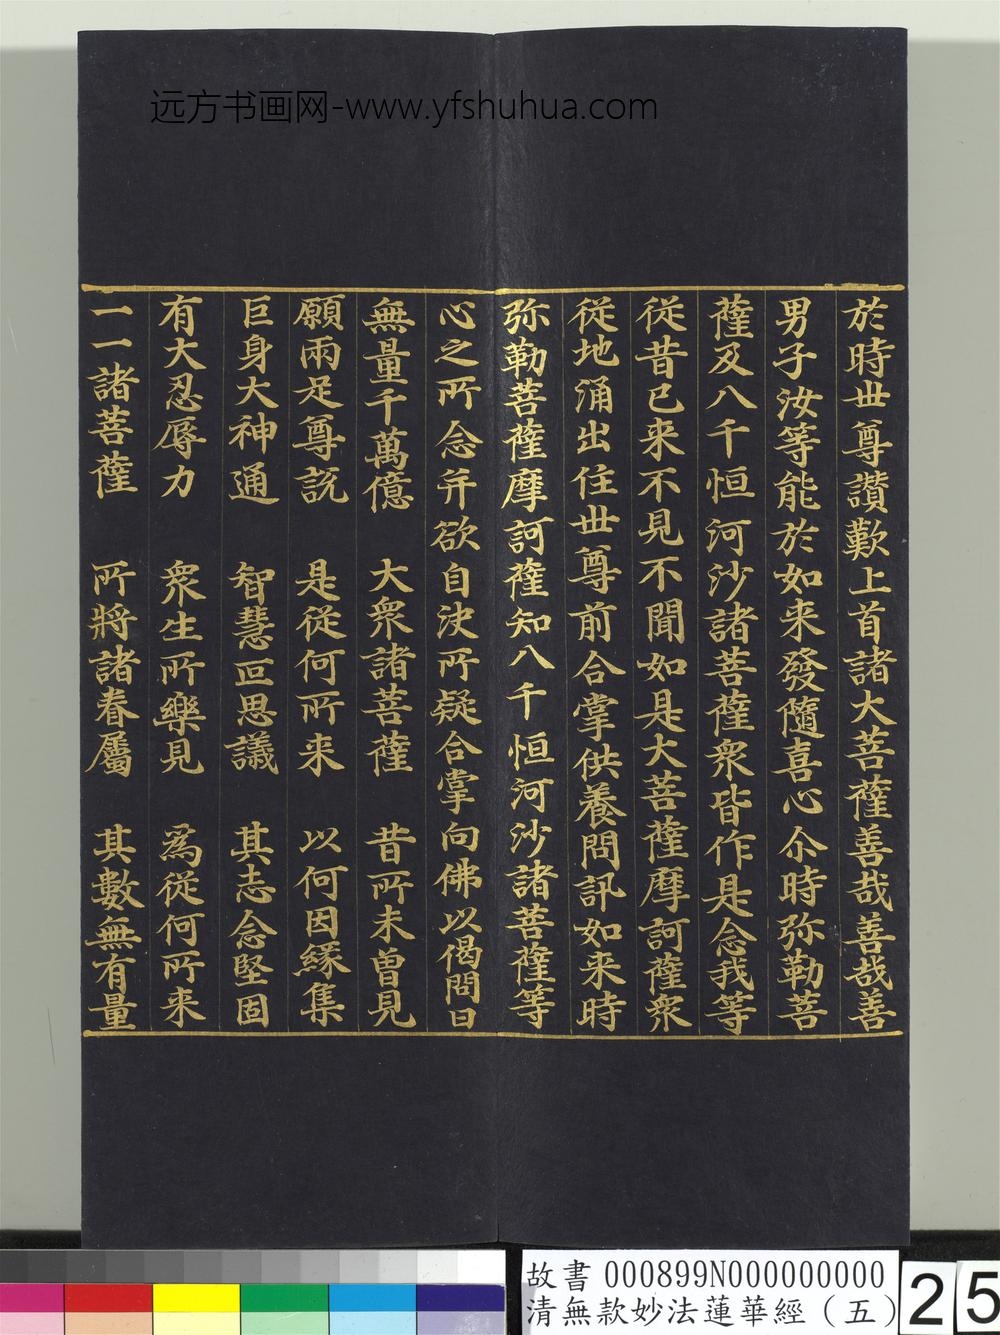 远方书画网-www.yfshuhua.com
於時世尊讃歎上首諸大菩薩善哉善哉善
男子汝等能於如来發隨喜心尒時弥勒菩
薩及八千恒河沙諸菩薩衆皆作是念我等
從昔已来不見不聞如是大菩薩摩訶薩衆
從地涌出住世尊前合掌供養問訊如来時
弥勒菩薩摩訶薩知八千恒河沙諸菩薩等
心之所念并欲自決所疑合掌向佛以偈問曰
無量千萬億 大衆諸菩薩 昔所未曾見
願兩足尊說 是從何所来 以何因緣集
巨身大神通 智慧叵思議 其志念堅固
有大忍辱力 衆生所樂見 為從何所来
一一諸菩薩 所將諸眷屬 其數無有量
故書 000899N000000000
清無款妙法蓮華經（五）
25